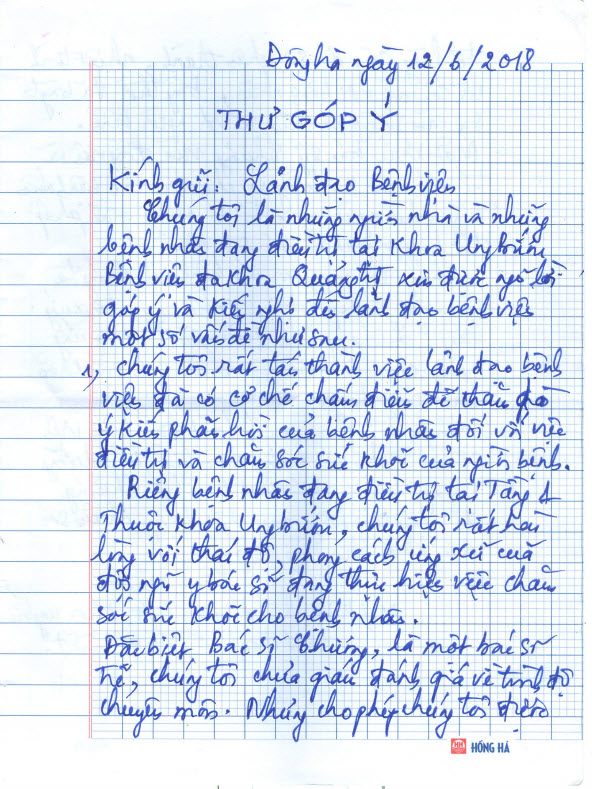 Đông hà ngày 12/6/2018
THƯ GÓP Ý
Kính gửi: Lảnh đạo Bệnh viện
Chúng tôi là những người nhà và những
bệnh nhân đang điều trị tại Khoa Ung bướu
Bệnh viện đa khoa Quảng trị xin được ngỏ lời
góp ý và kiến nghị đến lảnh đạo bệnh viện
một số vấn đề như sau.
1, chúng tôi rất tán thành việc lảnh đạo bệnh
viện đã có cơ chế chấm điểm để thăm dò
ý kiến phản hồi của bệnh nhân đối với việc
điều trị và chăm sóc sức khỏe của người bệnh.
Riêng bệnh nhân đang điều trị tại Tầng 4
Thuộc khoa Ung bướu, chúng tôi rất hài
lòng với thái độ, phong cách ứng xử của
đội ngũ y bác sĩ đang thực hiện việc chăm
sóc sức khỏe cho bệnh nhân.
Đặc biệt Bác sĩ Chương, là một bác sĩ
trẻ, chúng tôi chưa giám đánh giá về trình độ
chuyên môn. Nhưng cho phép chúng tôi được
HH HỒNG HÀ